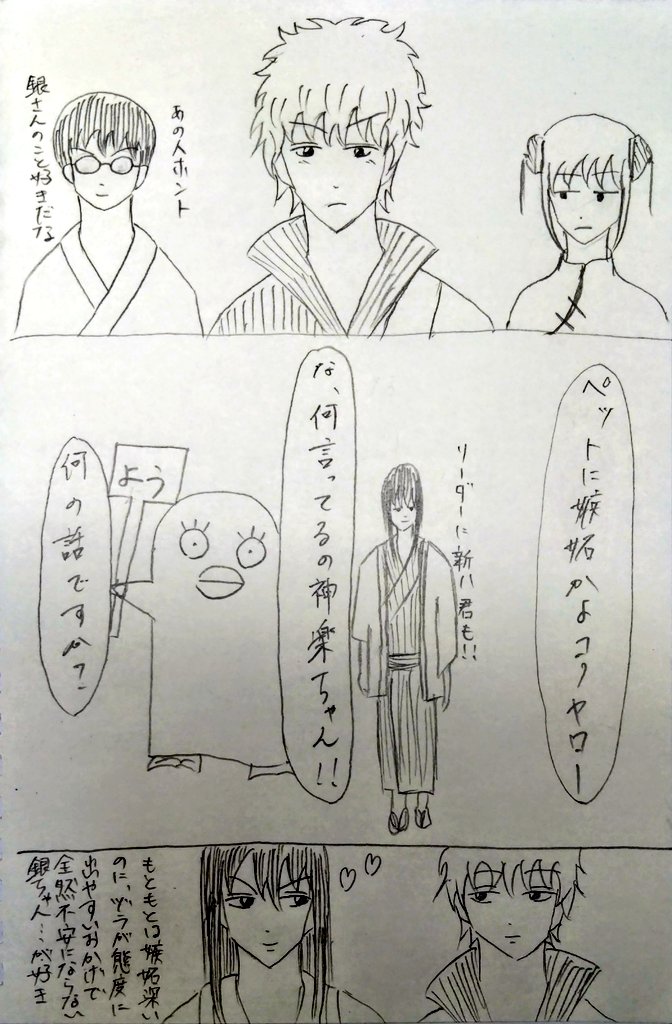 あの人ホント
銀さんのこと好きだな
ペットに嫉妬かよコノヤロー
リーダーに新八君も!!
な、何言ってるの神楽ちゃん!!
よう
何の話ですか?
もともとは嫉妬深い
のに、ヅラが態度に
出やすいおかげで
全然不安にならない
銀ちゃん…が好き